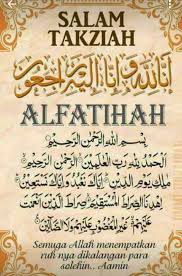 SALAM
TAKZIAH
إنا لله وإنا إليه راجعون
ALFATIHAH
بِسْمِ اللَّهِ الرَّحْمَٰنِ الرَّحِيمِ
الْحَمْدُ لِلَّهِ رَبِّ الْعَالَمِينَ الرَّحْمَٰنِ الرَّحِيمِ
مَالِكِ يَوْمِ الدِّينِ إِيَّاكَ نَعْبُدُ وَإِيَّاكَ نَسْتَعِينُ
اهْدِنَا الصِّرَاطَ الْمُسْتَقِيمَ صِرَاطَ الَّذِينَ أَنْعَمْتَ
عَلَيْهِمْ غَيْرِ الْمَغْضُوبِ عَلَيْهِمْ وَلَا الضَّالِّينَ
Semuga Allah menempatkan
ruh nya dikalangan para
solehin.. Aamin